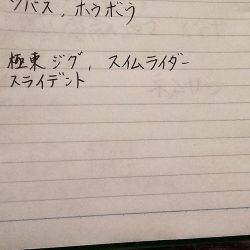 ソバス, ホウボウ
極東ジグ, スイムライダー
スライデント